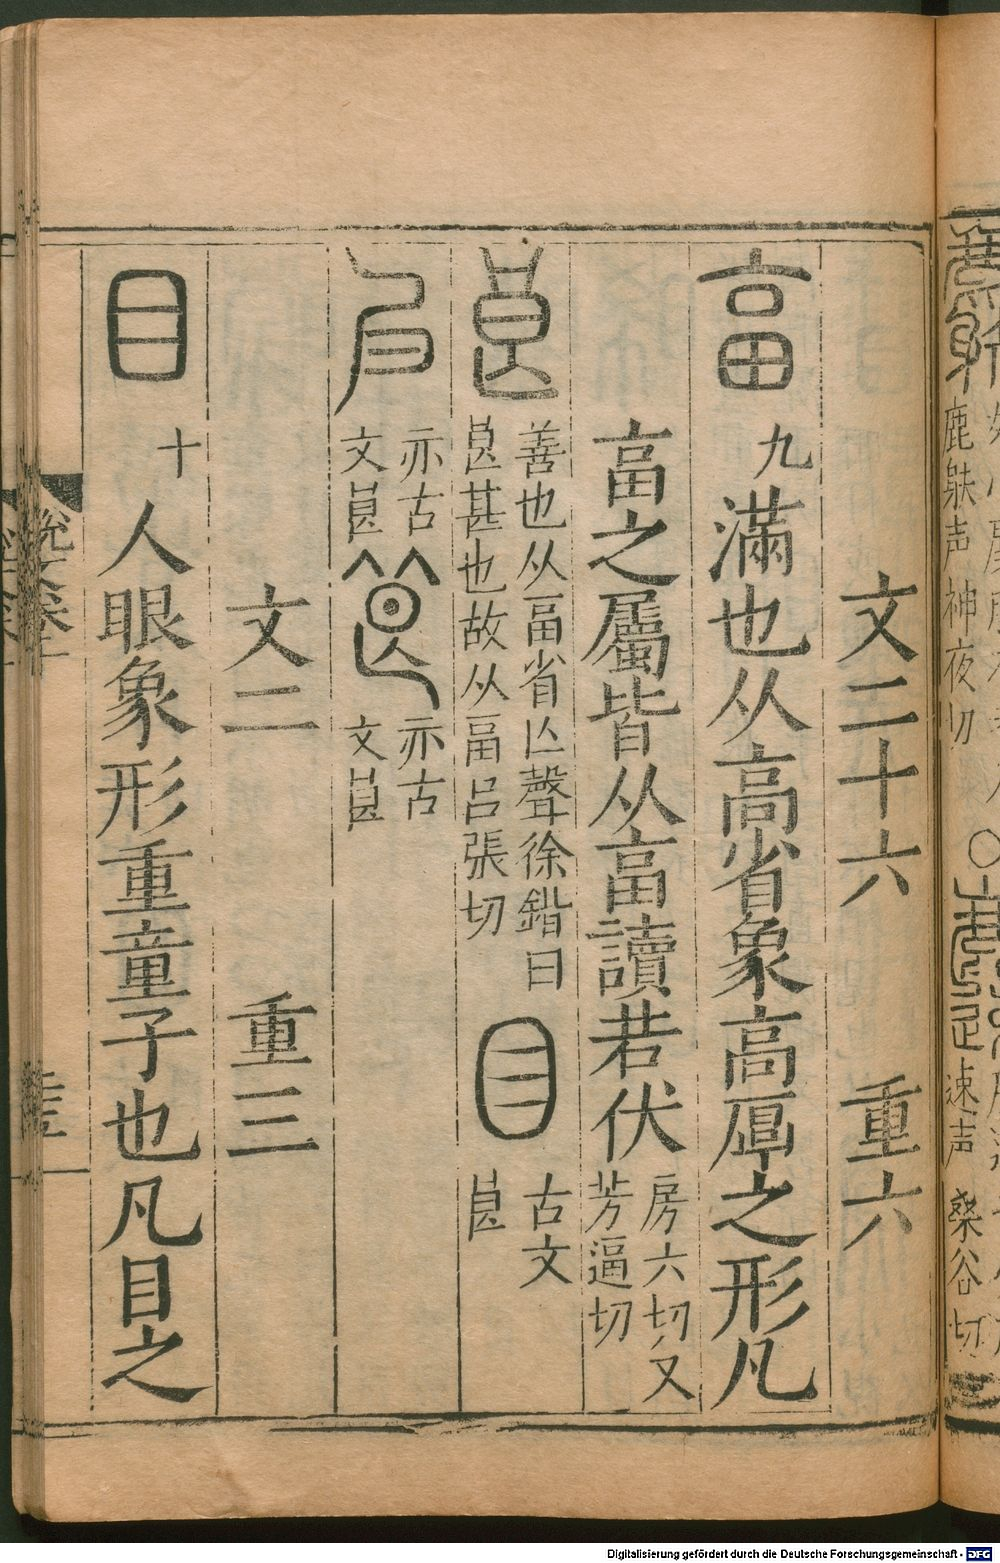 鹿
声神夜切
速声
桑谷切
文二十六 重六
畗 九 滿也从高省象高厚之形凡
畗之屬皆从畗讀若伏 房六切又芳逼切
良 善也从畐省亾聲徐鍇曰良甚也故从畐呂張切 目 古文良
亦古文良 亦古文良
文二 重三
目 十 人眼象形重童子也凡目之
Digitalisierung gefördert durch die Deutsche Forschungsgemeinschaft - DFG